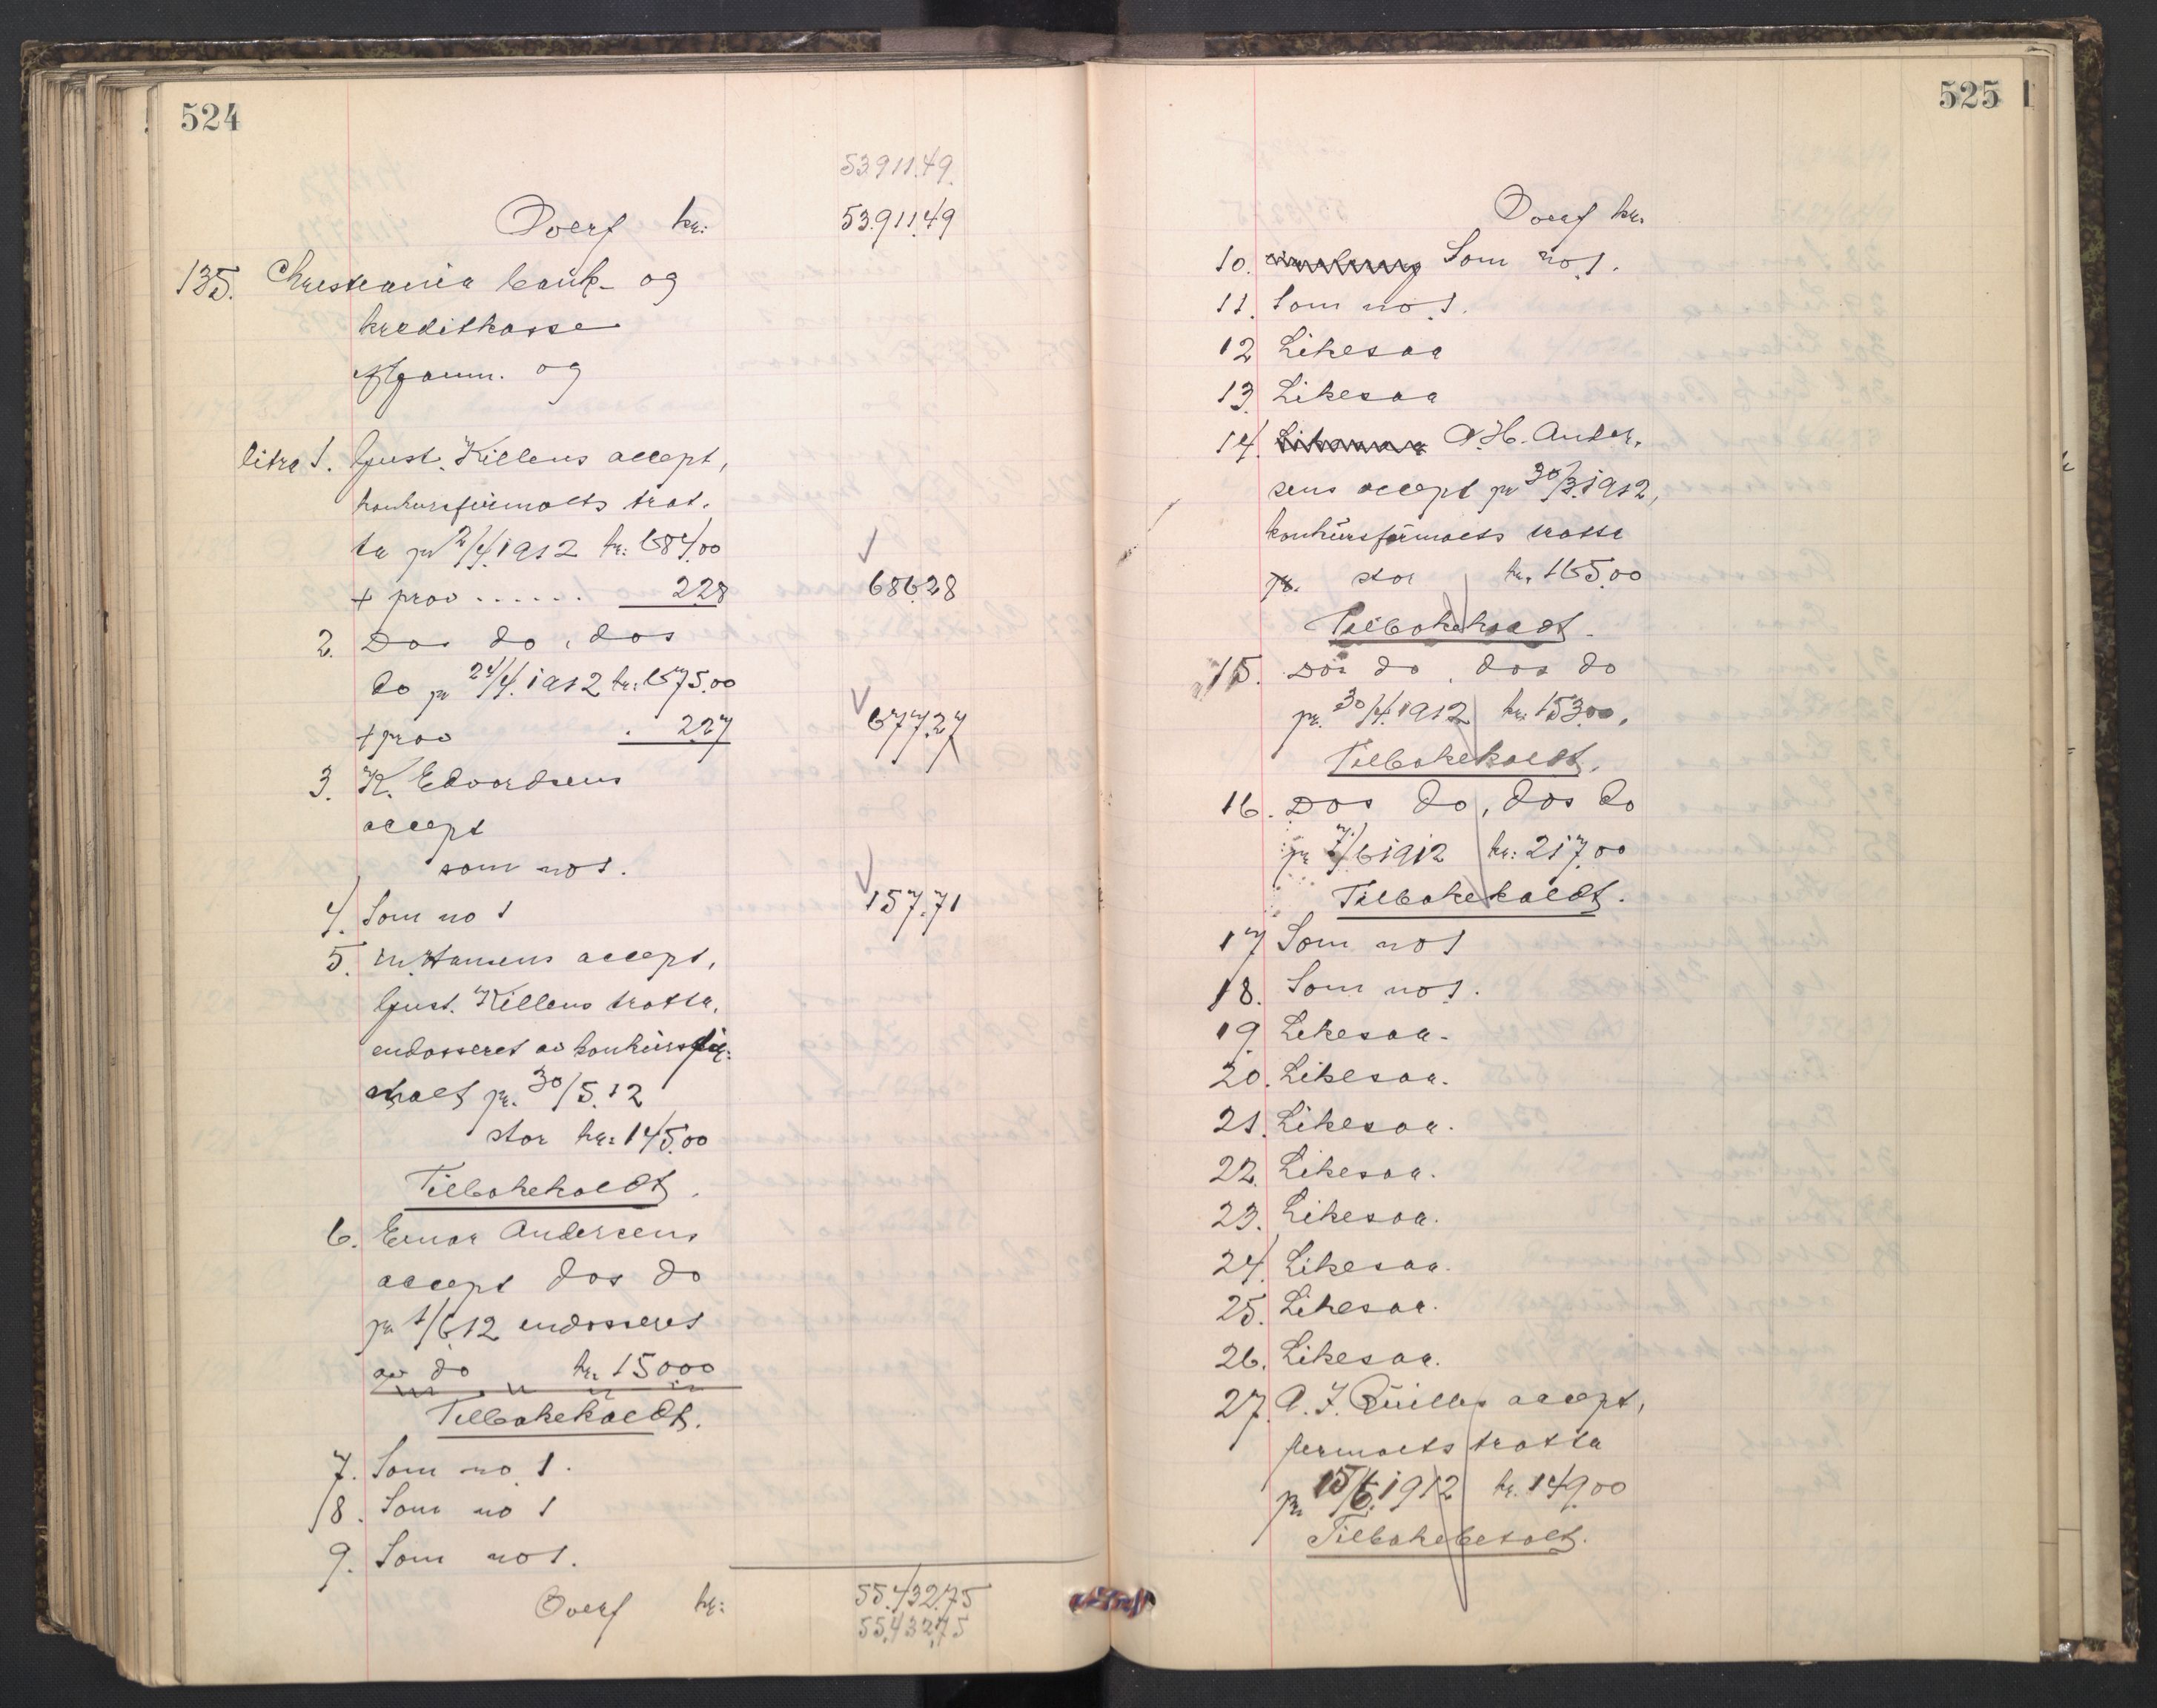 524
53.911.49.
Overf kr: 53.911.49
135. Christiania bank- og
kreditkasse
og
litra 1. Gust. Killens accept,
konkursfirmaets trat-
ta pr 2/4.1912 kr: 684.00
+ prov ...... 2.28 686.28
2. Dos do, dos
do pr 24/4.1912 kr: 675.00
+ prov . 2.27 677.27
3. K. Edvardsens
accept
som no 1.
4. Som no 1 157.71
5. M. Hansens accept,
Gust. Killens tratta,
endosseret av konkursfir-
maet pr. 30/5.12
stor kr: 145.00
Tilbakekaldt.
6. Einar Andersens
accept dos do
pr 1/6 12 endosseret
av do kr. 150.00
Tilbakekaldt.
7. Som no 1.
8. Som no 1
9. Som no 1.
Overf kr: 55.432.75
55.432.75
525
Overf kr.
10. Som no 1.
11. Som no 1.
12 Likesaa
13. Likesaa
14. Likesaa A. H. Ander-
sens accept pr 30/3.1912,
konkursfirmaets tratta
pr. stor kr. 165.00
Tilbakekaldt.
15. Dos do, dos do
pr. 30/4.1912 kr: 153.00.
Tilbakekaldt.
16. Dos do, dos do
pr 7/6 1912 kr: 217.00
Tilbakekaldt.
17 Som no 1
18. Som no 1.
19. Likesaa.
20. Likesaa.
21. Likesaa.
22. Likesaa.
23. Likesaa.
24. Likesaa.
25. Likesaa.
26. Likesaa.
27. A. J. accept,
firmaets tratta
pr 15/6.1912 kr. 149.00
Tilbakebetalt.